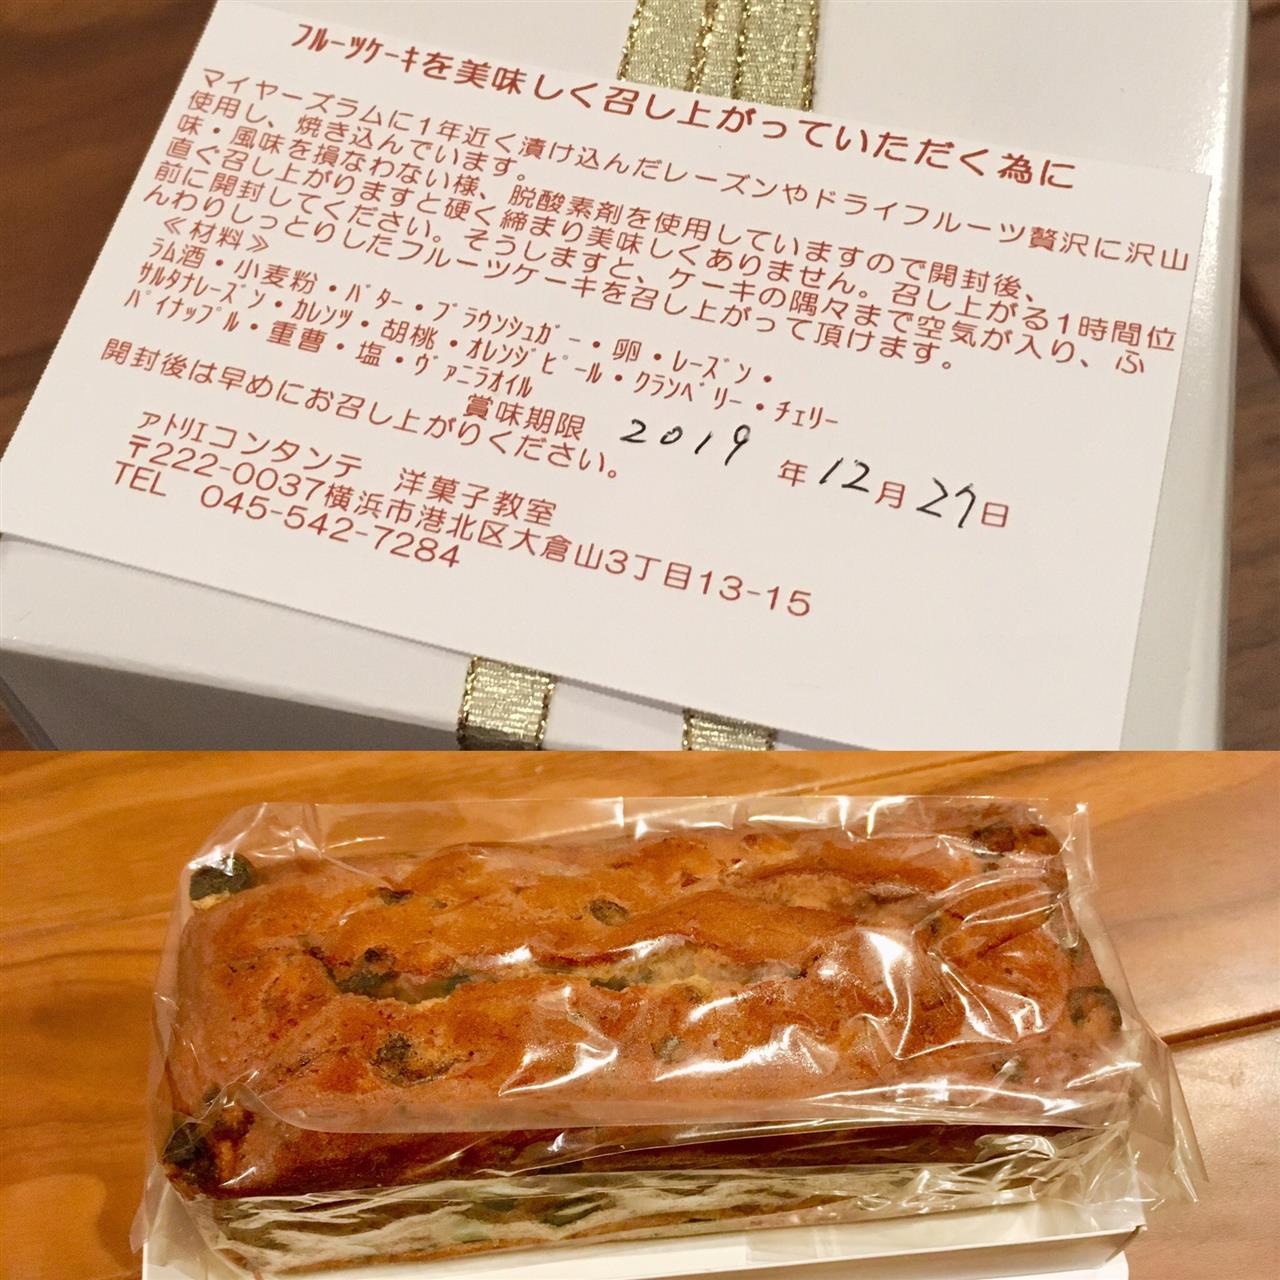 ﾌﾙｰﾂｹｰｷを美味しく召し上がっていただく為に
マイヤーズラムに1年近く漬け込んだレーズンやドライフルーツ贅沢に沢山
使用し、焼き込んでいます。
味・風味を損なわない様、脱酸素剤を使用していますので開封後、
直ぐ召し上がりますと硬く締まり美味しくありません。召し上がる1時間位
前に開封してください。そうしますと、ケーキの隅々まで空気が入り、ふ
んわりしっとりしたフルーツケーキを召し上がって頂けます。
≪材料≫
ﾗﾑ酒・小麦粉・ﾊﾞﾀｰ・ﾌﾞﾗｳﾝｼｭｶﾞｰ・卵・ﾚｰｽﾞﾝ・
ｻﾙﾀﾅﾚｰｽﾞﾝ・ｶﾚﾝﾂ・胡桃・ｵﾚﾝｼﾞﾋﾟｰﾙ・ｸﾗﾝﾍﾞﾘｰ・ﾁｪﾘｰ
ﾊﾟｲﾅｯﾌﾟﾙ・重曹・塩・ヴｧﾆﾗｵｲﾙ
賞味期限 2019 年 12月 27日
開封後は早めにお召し上がりください。
ｱﾄﾘｴコンタンテ 洋菓子教室
〒222-0037横浜市港北区大倉山3丁目13-15
TEL 045-542-7284